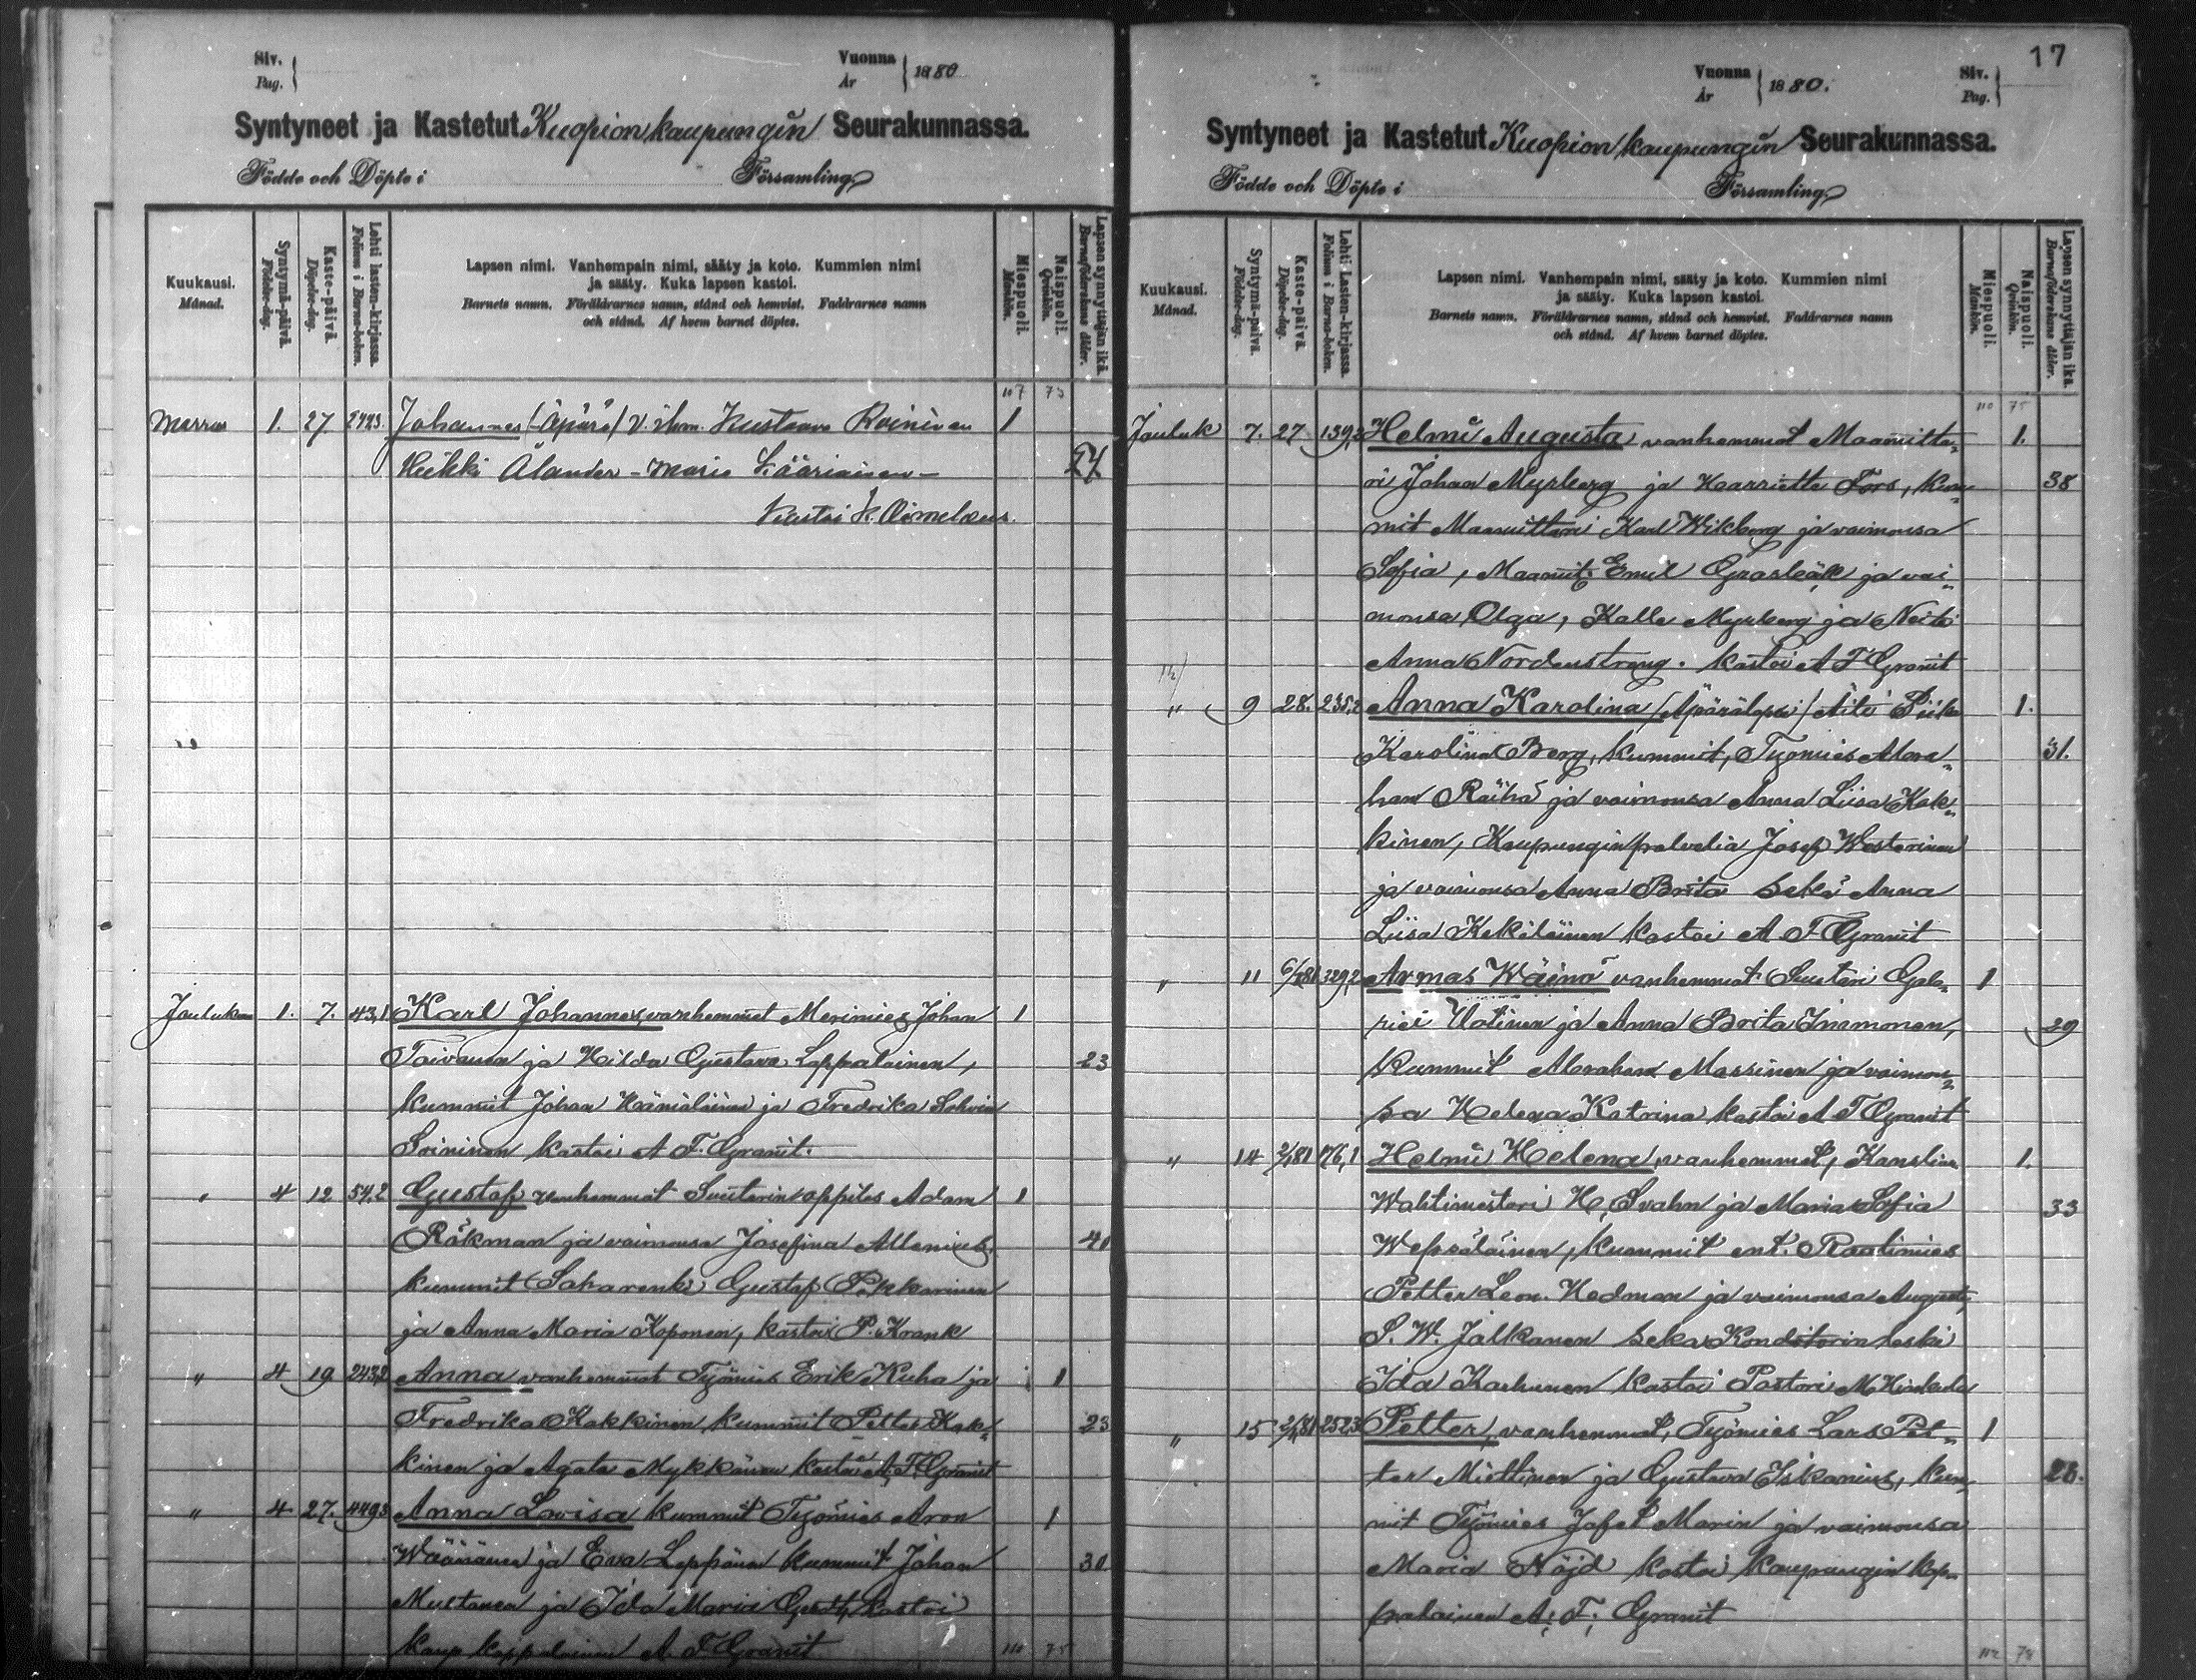 Siv.
Pag.
Vuonna
År
1880
Syntyneet ja Kastetut Kuopion kaupungin Seurakunnassa.
Födde och Döpte i Församling
Kuukausi.
Månad.
Syntymä-päivä.
Födelse-dag.
Kaste-päivä.
Döpelse-dag.
Lehti lasten-kirjassa.
Folium i Barna-boken.
Lapsen nimi. Vanhempain nimi, sääty ja koto. Kummien nimi
ja sääty. Kuka lapsen kastoi.
Barnets namn. Föräldrarnes namn, stånd och hemvist. Faddrarnes namn
och stånd. Af hvem barnet döptes.
Miespuoli.
Mankön.
Naispuoli.
Qvinkön.
Lapsen synnyttäjän ikä.
Barnaföderskans ålder.
107 73
Marras 1. 27. Johannes (Äpärä) Kustaava Roininen 1
Heikki Ålander - Maria Kääriäinen -
Kastoi K.
Jouluk. 1. 7. 43,1 Karl Johannes, vanhemmat Merimies Johan 1
Toivanen ja Hilda Gustava Lappalainen, 23
kummit Johan Hämäläinen ja Fredrika
Soininen kastoi A. F. Granit.
" 4 12 54,2 Gustaf vanhemmat Suutarin oppilas Adam 1
Råkman ja vaimonsa Josefina Allenius. 40
kummit Gustaf Pekkarinen
ja Anna Maria Koponen, kastoi P. Krank
" 4 19 243,2 Anna vanhemmat Työmies Erik Kuha ja 1
Fredrika Kakkinen, kummit Petter Kak- 23
kinen ja Agata Mykkänen kastoi A. F. Granit
" 4 27. 449,3 Anna Lovisa kummit Työmies Aron 1
Väänänen ja Eva Leppänen kummit Johan 30
Mustonen ja Ida Maria kastoi
kaup kappalainen A. F. Granit
110 75
17
Vuonna
År
1880.
Siv.
Pag.
Syntyneet ja Kastetut Kuopion kaupungin Seurakunnassa.
Födde och Döpte i Församling
Kuukausi.
Månad.
Syntymä-päivä.
Födelse-dag.
Kaste-päivä.
Döpelse-dag.
Lehti Lasten-kirjassa.
Folium i Barna-boken.
Lapsen nimi. Vanhempain nimi, sääty ja koto. Kummien nimi
ja sääty. Kuka lapsen kastoi.
Barnets namn. Föräldrarnes namn, stånd och hemvist. Faddrarnes namn
och stånd. Af hvem barnet döptes.
Miespuoli.
Mankön.
Naispuoli.
Qvinkön.
Lapsen synnyttäjän ikä.
Barnaföderskans ålder.
110 75
Jouluk 7. 27 139,2 Helmi Augusta vanhemmat Maamitta- 1.
ri Johan Myrberg ja Harriette Fors, kum- 38
mit Maamittari Karl Wikberg ja vaimonsa
Sofia, Maamit. Emil Gråsbäck ja vai-
monsa Olga, Kalle Myrberg ja Neiti
Anna Nordenstreng. kastoi A F Granit
" 9 28. 235,2 Anna Karolina (Äpärälapsi) Äiti Piika 1.
Karolina Berg, kummit, Työmies Abra- 31.
ham Räihä ja vaimonsa Anna Liisa Kak-
kinen, Kaupunginpalvelia Josef Westerinen
ja vaimonsa Anna Brita sekä Anna
Liisa Kekäläinen kastoi A. F Granit
" 11 6/1 81 329,2 Armas Wäinö vanhemmat Suutari Gab- 1
riel Utinen ja Anna Brita Immonen, 29
Kummit Abraham Massinen ja vaimon-
sa Helena Katrina kastoi A F Granit
" 14 2/1 81 176,1 Helmi Helena, vanhemmat, Kanslian 1.
Wahtimestari H. Svahn ja Maria Sofia 33
Wepsäläinen, kummit ent. Raatimies
Petter Leon. Hedman ja vaimonsa August,
S. W. Jalkanen sekä Konditorin leski
Ida Karhunen kastoi Pastori
" 15 2/1 81 252,3 Petter, vanhemmat, Työmies Lars Pet- 1
ter Miettinen ja Gustava Iskanius, kum- 26.
mit Työmies Jafet Marin ja vaimonsa
Maria Nöjd kastoi kaupungin kap-
palainen A. F. Granit
112 78